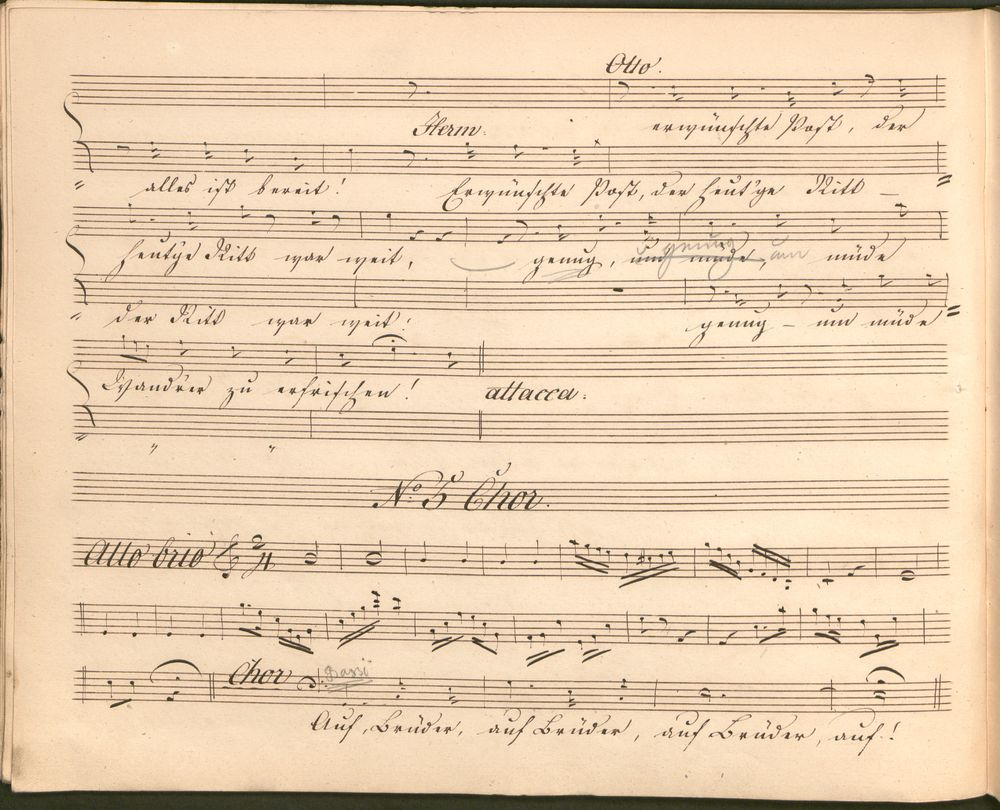 Otto.
erwünschte Post, der
Herm:
alles ist bereit! Erwünschte Post, der heut'ge Ritt
heut'ge Ritt war weit, genug, um müde, um müde
genug
der Ritt war weit! genug – um müde
Wandrer zu erfrischen! attacca:
No. 5 Chor.
Allo brio 2/4
Chor Bassi
Auf, Brüder, auf Brüder, auf Brüder, auf!